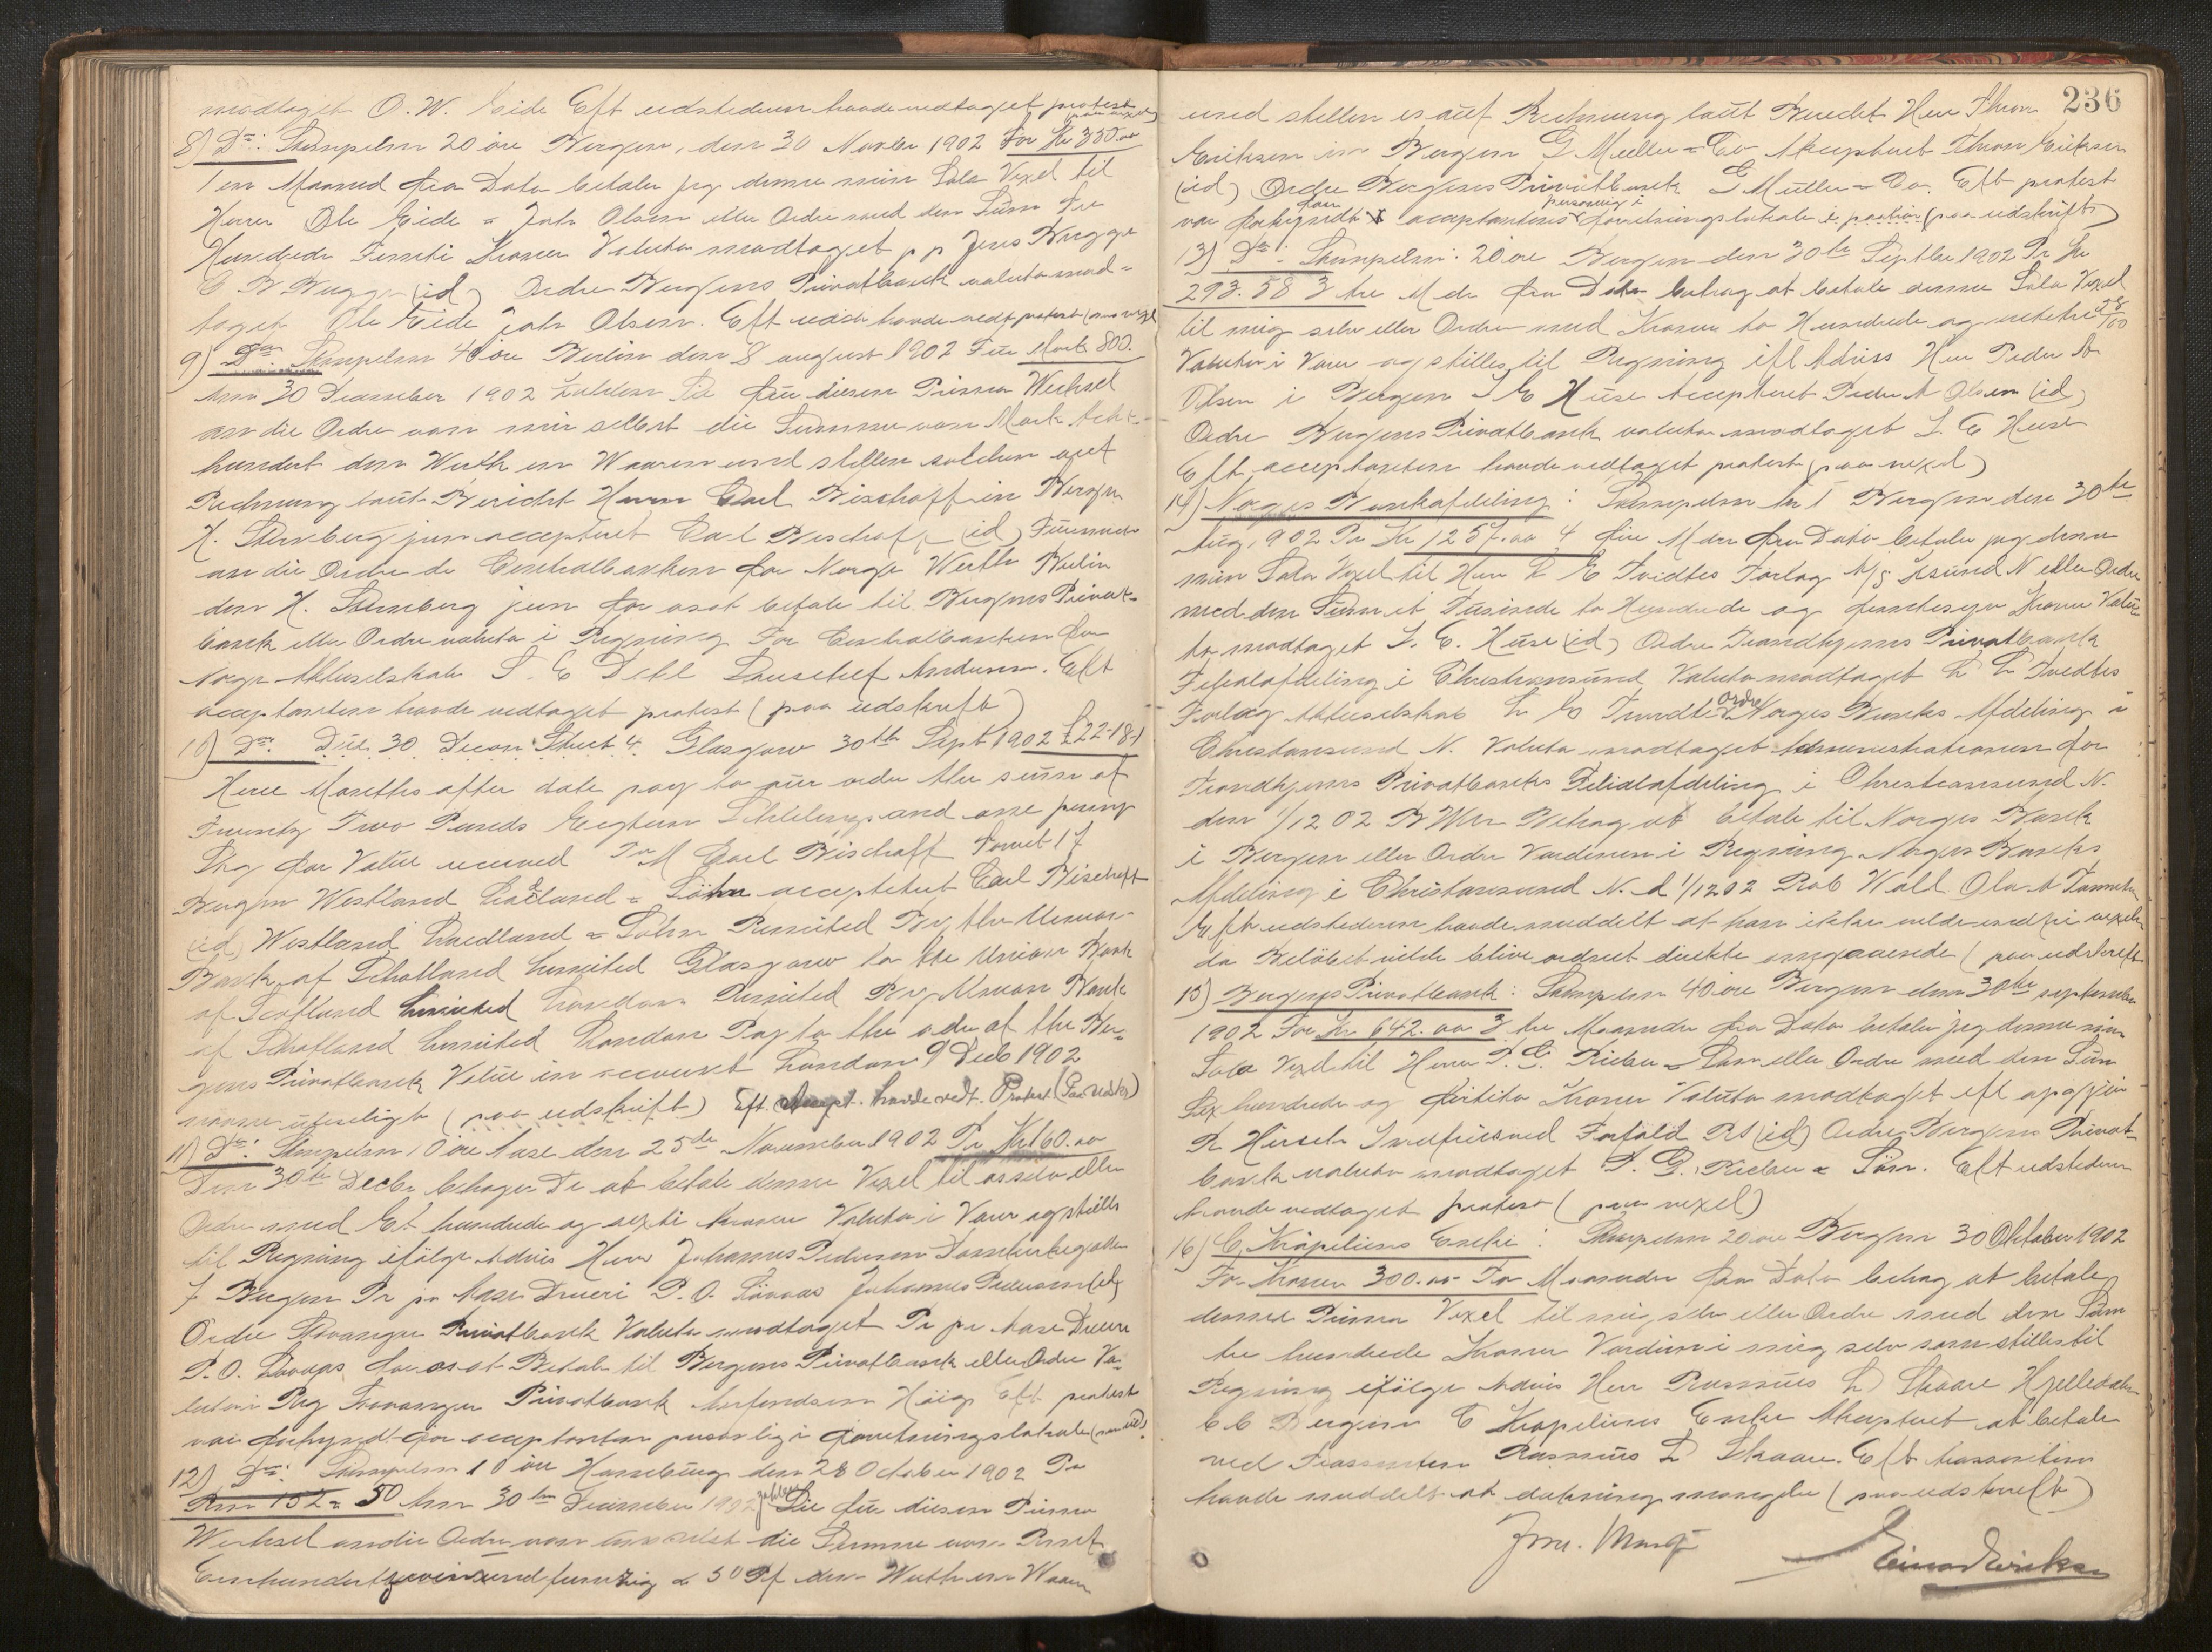 modtaget O. W. Eide Eft udstederen havde vedtaget protest
(paa vexel)
8) Do: Stempelm 20 öre Bergen, den 30 Novbr 1902 For Kr 350.00
1 en Maaned fra Dato betaler jeg denne min Sola Vexel til
Herrer Ole Eide = Joh Olsen eller Ordre med den Sum Tre
Hundrede Femti Kroner Valuta modtaget p p Jens Brygge
C B Brugge (id) Ordre Bergens Privatbank valuta mod=
taget Ole Eide Joh Olsen. Eft udst havde vedt protest (paa vexel
9) Do Stempelm 40 öre Berlin den 8 august 1902 Für Mark 800.
Am 30 December 1902 zahlen Sie für diesen Prima Wechsel
an die Ordre von mir selbst die Summe von Mark Acht-
hundert den Werth in Waaren und stellen solchen auf
Rechnung laut Bericht Herrn Carl Bischoff in Bergen
H. Sternberg jun acceptert Carl Bischoff (id) Für mich
an die Ordre de Centralbanken for Norge Werth Berlin
den H. Sternberg jun for osat betale til Bergens Privat-
bank eller Ordre valuta i Regning For Centralbanken for
Norge Aktieselskab S. E Dahl Andersen. Eft
acceptanten havde vedtaget protest (paa udskrift)
10) Do. Due 30 Decem Street 4. Glasgow 30th Sept 1902 £22-18-1
Three Months after date pay to our order the sum of
Twenty Two Punds Eegteen Schilling and one penny
Stg for Value received To M Carl Bischoff Torvet 17
Bergen Westland Laidland = Sohn acceptert Carl Bischoff
(id) Westland Laidland = Sohn Remited By the Union-
Bank of Schotland Limited Glasgow to the Union Bank
of Scotland Limited London Remited By Union Bank
of Schotland Limited London Pay to the order of the Ber=
gens Privatbank Value in account London 9 Decb 1902
navne uleseligt (paa udskrift) Eft. Accept. havde vedt. Protest. (Paa Udskr)
11) Do: Stempelm 10 öre Aase den 25de November 1902 Pr Kr 160.00
Den 30te Decbr behager De at betale denne Vexel til osselv eller
Ordre med Et hundrede og sexti kroner Valuta i Varer og stilles
til Regning ifölge Advis Herr Johannes Pedersen
7 Bergen Pr pr Aase Drueri P. O. Johannes Pedersen (id)
Ordre Stavanger Privatbank Valuta modtaget Pr pr Aase Drueri
P. O. for osat Betale til Bergens Privatbank eller Ordre Va-
luta i Reg Stavanger Privatbank Höig Eft protest
var forkyndt for acceptanten personlig i forretningslokale (paa uds)
12) Do: Stempelm 10 öre Hamburg den 28 October 1902 Pr
Rm 152 = 50 Am 30ten December 1902 zahlen Sie für diesen Prima
Wechsel an die Ordre von uns selbst die Summe von Rmk
Einhundertzweiundfunfzig & 50 Pf den Werth in Waaren
236
und stellen es auf Rechnung laut Bericht Herr Thron
Eriksen in Bergen G Müller = Co Akceptert Thron Eriksen
(id) Ordre Bergens Privatbank G Müller = Co. Eft protest
var forkyndt for acceptantens personlig i forretningslokale i paa udskrift)
13) Do: Stempelm: 20 öre Bergen den 30te Septbr 1902 Pr Kr
293.58 3 tre Mdr fra Dato behag at betale denne Sola Vexel
til mig selv eller Ordre med Kroner to Hundrede og nittitre 58/100
Valuta i Varer og stilles til Regning ifl Adviss Herr Peder A
Olsen i Bergen L E Huse Accepteret Peder A Olsen (id)
Ordre Bergens Privatbank valuta modtaget L. E Huse
Eft acceptanten havde vedtaget protest (paa vexel)
14) Norges Bankafdeling: Stempelm kr 1 Bergen den 30te
Aug. 902 Pr Kr 1257.00 4 fire Mdr fra Dato betaler jeg denne
min Sola Vexel til Herr L E Tvedtes Forlag A/S Xsund N eller Ordre
med den Sum et Tusinde to Hundrede og femtisyv Kroner Valu-
ta modtaget L. E. Huse (id) Ordre Trondhjems Privatbank
Filialafdeling i Christiansund Valuta modtaget L E Tvedtes
Forlag Aktieselskab L E Tvedte Ordre Norges Banks Afdeling i
Christiansund N. Valuta modtaget Administrationen for
Trondhjems Privatbanks Filialafdeling i Christiansund N.
den 1/12 02 Betrag at betale til Norges Bank
i Bergen eller Ordre Værdien i Regning Norges Banks
Afdeling i Christiansund N. d 1/12 02 Rob Wall Ola A
Eft udstederen havde meddelt at han ikke vilde indfri vexelen
da Belöbet vilde blive ordnet direkte omgaaende (paa udskrift
15) Bergens Privatbank: Stempelm 40 öre Bergen den 30te september
1902 For Kr 642.00 3 tre Maaneder fra Dato betaler jeg denne min
Sola Vexel til Herrer P. G. Rieber = Sön eller Ordre med den Sum
Sex hundrede og firtito Kroner Valuta modtaget ifl opgjör
R Hirsch Indfriesved Forfald RS (id) Ordre Bergens Privat-
bank valuta modtaget P. G. Rieber = Sön. Eft udstederen
havde vedtaget protest (paa vexel)
16) C. Krøpeliens Enke: Stempelm 20 öre Bergen 30 Oktober 1902
For Kroner 300.00 To Maaneder fra Dato behag at betale
denne Prima Vexel til mig selv eller Ordre med den Sum
tre hundrede Kroner Værdien i mig selv som stilles til
Regning ifölge Advis Herr Rasmus L Skaare
66 Bergen C Krøpeliens Enke Akceptert at betale
ved Trassenten Rasmus L Skaare. Eft trassenten
havde meddelt at dækning mangler (paa udskrift)
Einar Eriksen